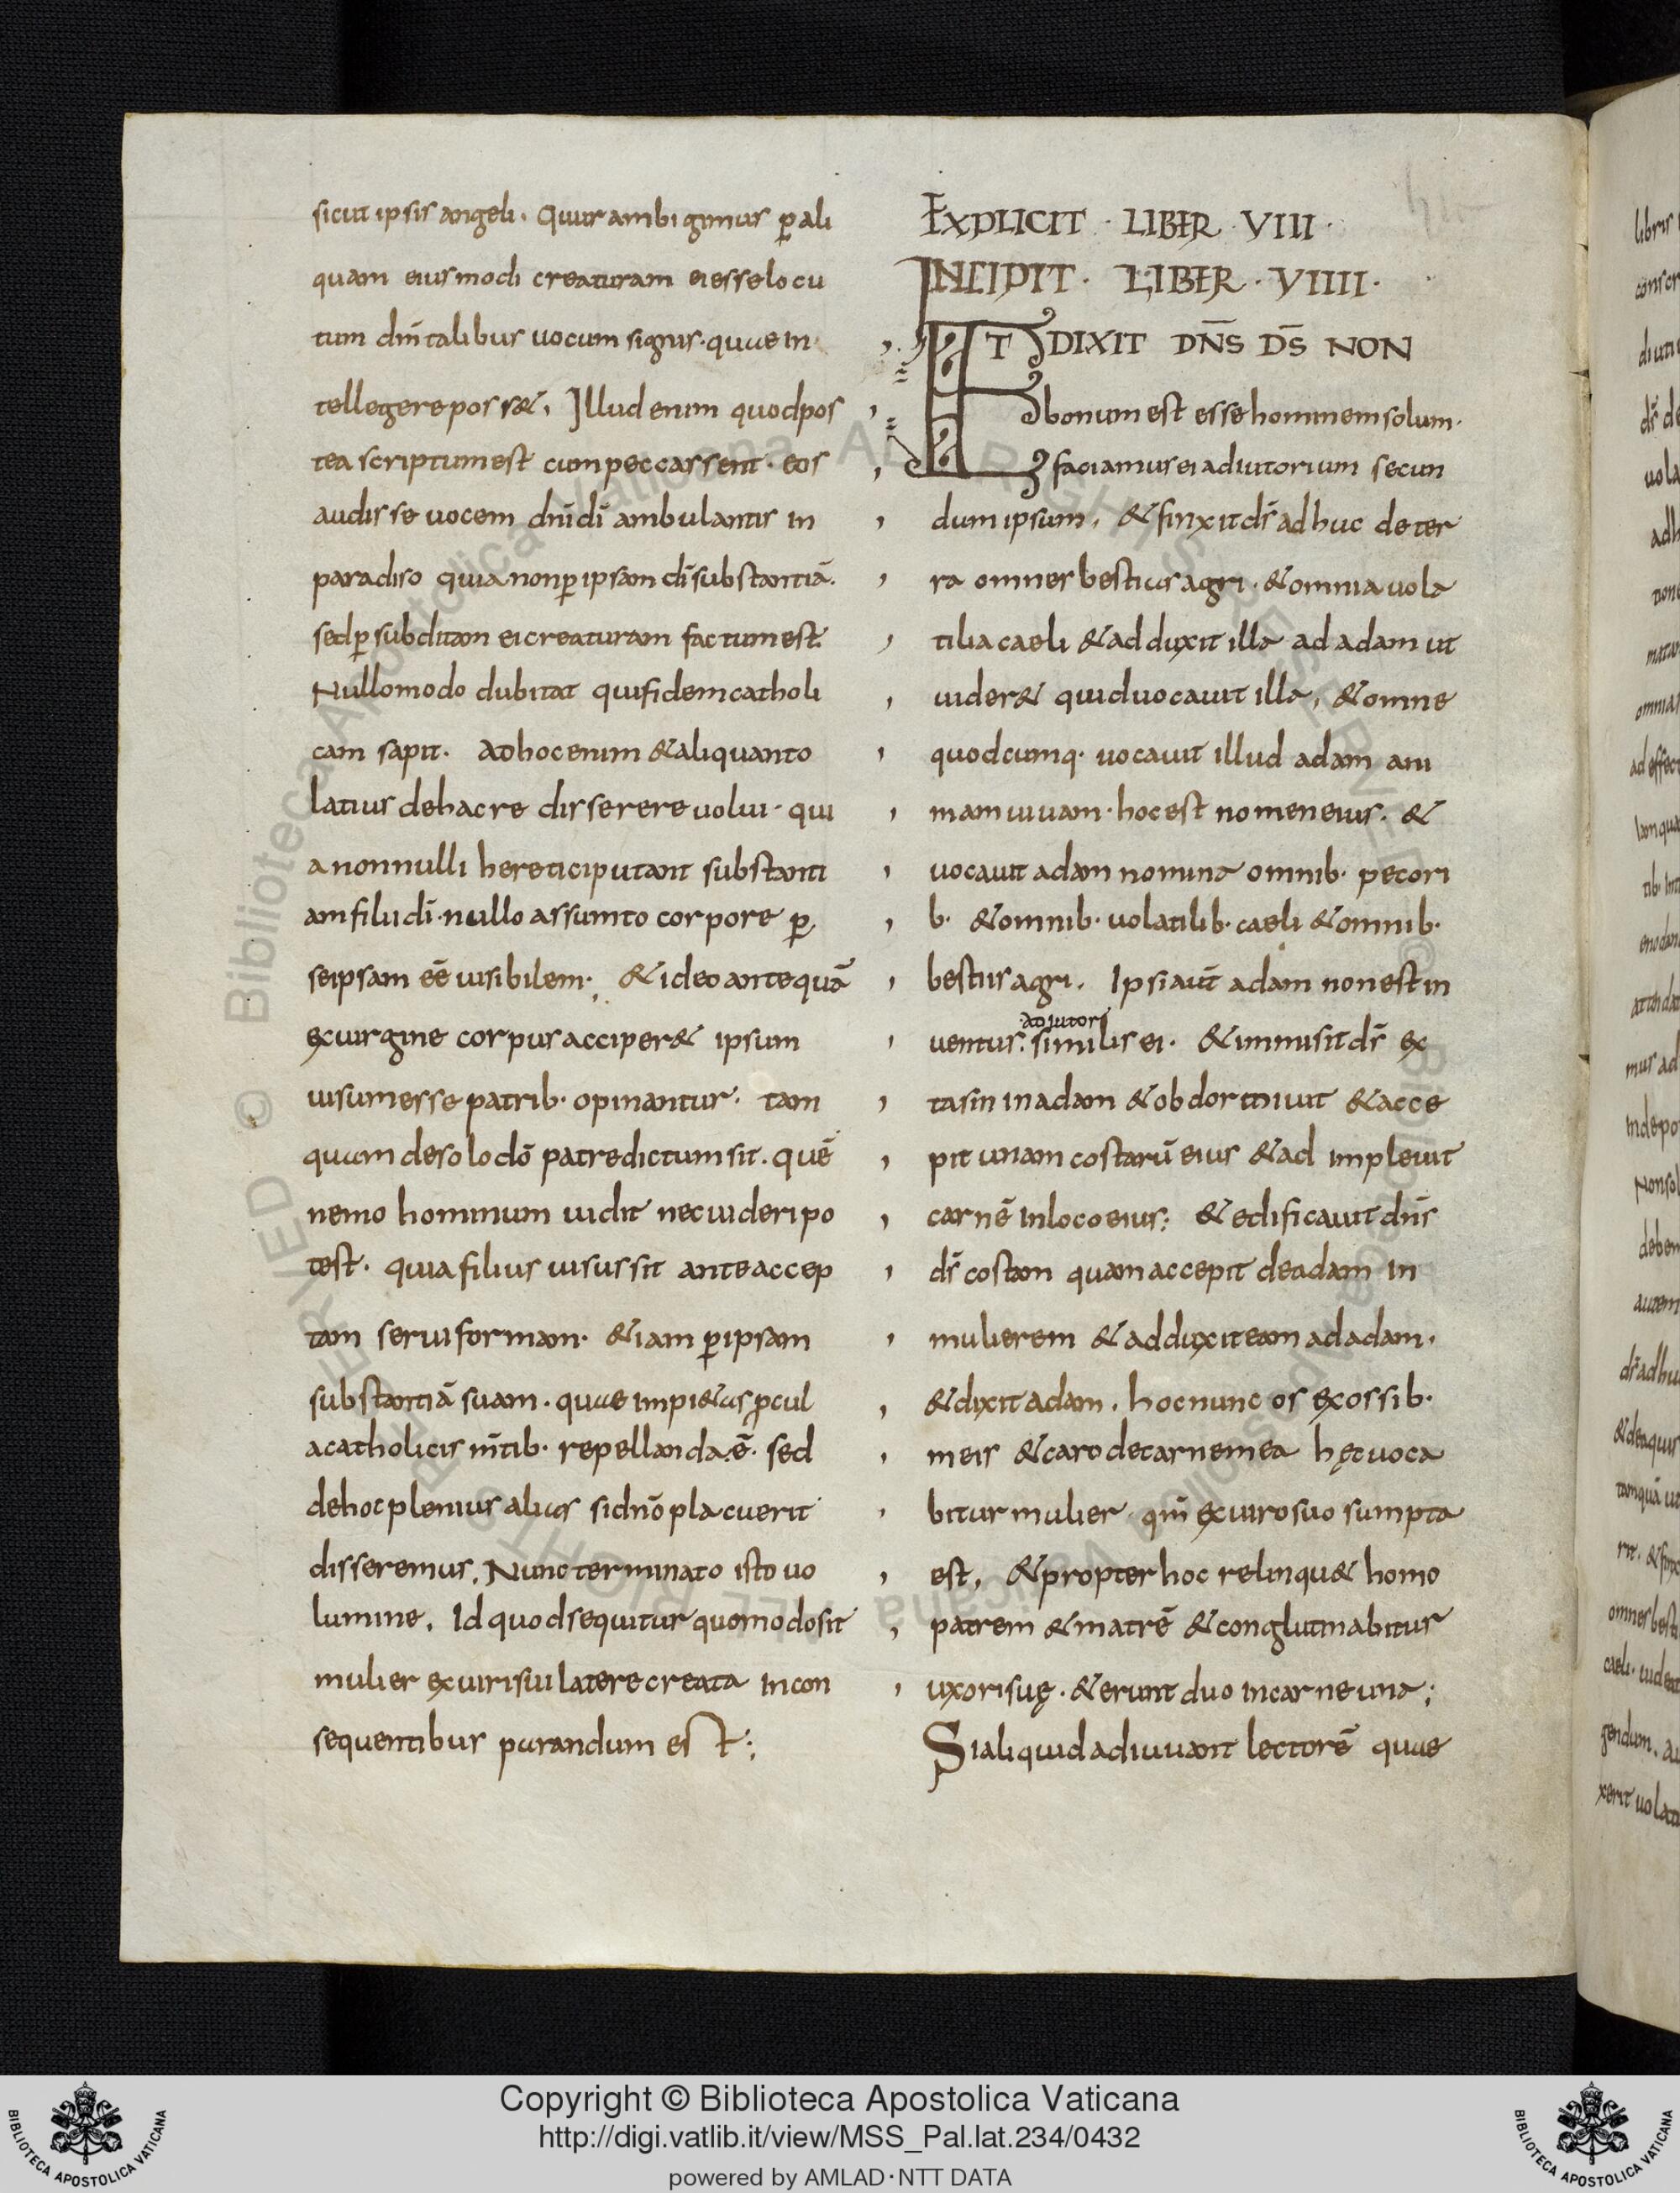 sicut ipsis angeli. Quur ambigimus ꝑ ali
quam eiusmodi creaturam ei esse locu
tum dm̄ talibus uocum signis. quae in
tellegere poss&. Illud enim quod pos
tea scriptum est cum peccassent. eos
audisse uocem dn̄i dī ambulantis in
paradiso quia non ꝑ ipsam dī substantiā.
sed ꝑ subditam ei creaturam factum est.
Nullomodo dubitat qui fidem catholi
cam sapit. Ad hoc enim & aliquanto
latius de hac re disserere uolui. qui
a nonnulli heretici putant substanti
am filii dī. nullo assumto corpore ꝑ
se ipsam eē uisibilem. & ideo antequā
ex uirgine corpus acciper& ipsum
uisum esse patrib. opinantur. tam
quam de solo dō patre dictum sit. quē
nemo hominum uidit nec uideri po
test. quia filius uisus sit ante accep
tam serui formam. & iam ꝑ ipsam
substantiā suam. quae impi&as ꝓcul
a catholicis m̄tib. repellanda ē. sed
de hoc plenius alias si dn̄o placuerit
disseremus. Nunc terminato isto uo
lumine. Id quod sequitur quomodo sit
mulier ex uiri sui latere creata in con
sequentibus parandum est:;
EXPLICIT · LIBER · VIII ·
INCIPIT · LIBER · VIIII ·
ET DIXIT DN̄S DS̄ NON
bonum est esse hominem solum.
faciamus ei adiutorium secun
dum ipsum. & finxit ds̄ adhuc de ter
ra omnes bestias agri. & omnia uola
tilia caeli & adduxit illa ad adam ut
uider& quid uocauit illa. & omne
quodcumq. uocauit illud adam ani
mam uiuam. hoc est nomen eius. &
uocauit adam nomina omnib. pecori
b. & omnib. uolatilib. caeli & omnib.
bestiis agri. Ipsi aūt adam non est in
adiutor
uentus: similis ei. & inmisit ds̄ ex
tasin in adam & obdormiuit & acce
pit unam costarū eius & adimpleuit
carnē in loco eius: & edificauit dn̄s
ds̄ costam quam accepit de adam in
mulierem & adduxit eam ad adam.
& dixit adam. hoc nunc os ex ossib.
meis & caro de carne mea hęc uoca
bitur mulier qm̄ ex uiro suo sumpta
est. & propter hoc relinqu& homo
patrem & matrē & conglutinabitur
uxori suę. & erunt duo in carne una;
Si aliquid adiuuant lectorē quae
Copyright © Biblioteca Apostolica Vaticana
http://digi.vatlib.it/view/MSS_Pal.lat.234/0432
powered by AMLAD·NTT DATA